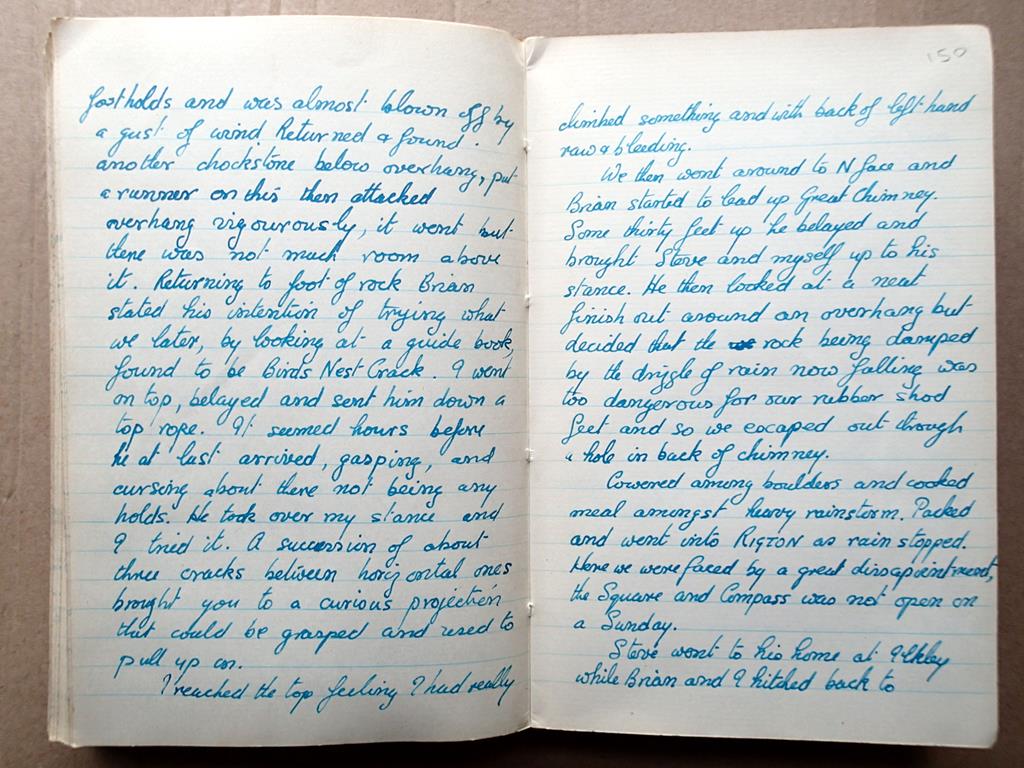 footholds and was almost blown off by
a gust of wind. Returned & found
another chockstone below overhang, put
a runner on this then attacked
overhang vigourously, it went but
there was not much room above
it. Returning to foot of rock Brian
stated his intention of trying what
we later, by looking at a guide book,
found to be Birds Nest Crack. I went
on top, belayed and sent him down a
top rope. It seemed hours before
he at last arrived, gasping, and
cursing about there not being any
holds. He took over my stance and
I tried it. A succession of about
three cracks between horizontal ones
brought you to a curious projection
that could be grasped and used to
pull up on.
I reached the top feeling I had really
150
climbed something and with back of left hand
raw & bleeding.
We then went around to N face and
Brian started to lead up Great Chimney.
Some thirty feet up he belayed and
brought Steve and myself up to his
stance. He then looked at a neat
finish out around an overhang but
decided that the rock being damped
by the drizzle of rain now falling was
too dangerous for our rubber shod
feet and so we escaped out through
a hole in back of chimney.
Cowered among boulders and cooked
meal amongst heavy rainstorm. Packed
and went into RIGTON as rain stopped.
Here we were faced by a great dissapointment,
the Square and Compass was not open on
a Sunday.
Steve went to his home at Ilkley
while Brian and I hitched back to